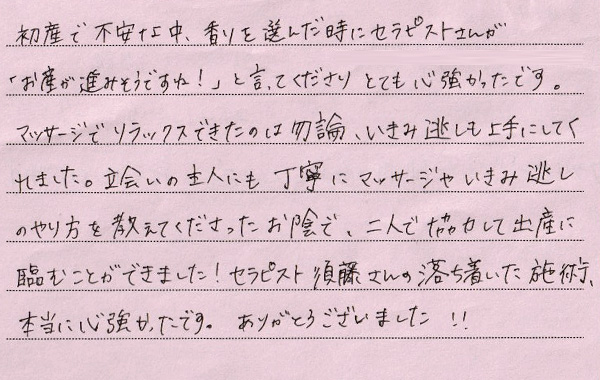 初産で不安な中、香りを選んだ時にセラピストさんが
「お産が進みそうですね！」と言ってくださり とても心強かったです。
マッサージでリラックスできたのは勿論、いきみ逃しも上手にしてく
れました。立会いの主人にも 丁寧に マッサージや いきみ逃し
のやり方を 教えてくださったお陰で、二人で協力して出産に
臨むことができました！セラピスト 須藤さんの落ち着いた施術、
本当に心強かったです。 ありがとうございました !!